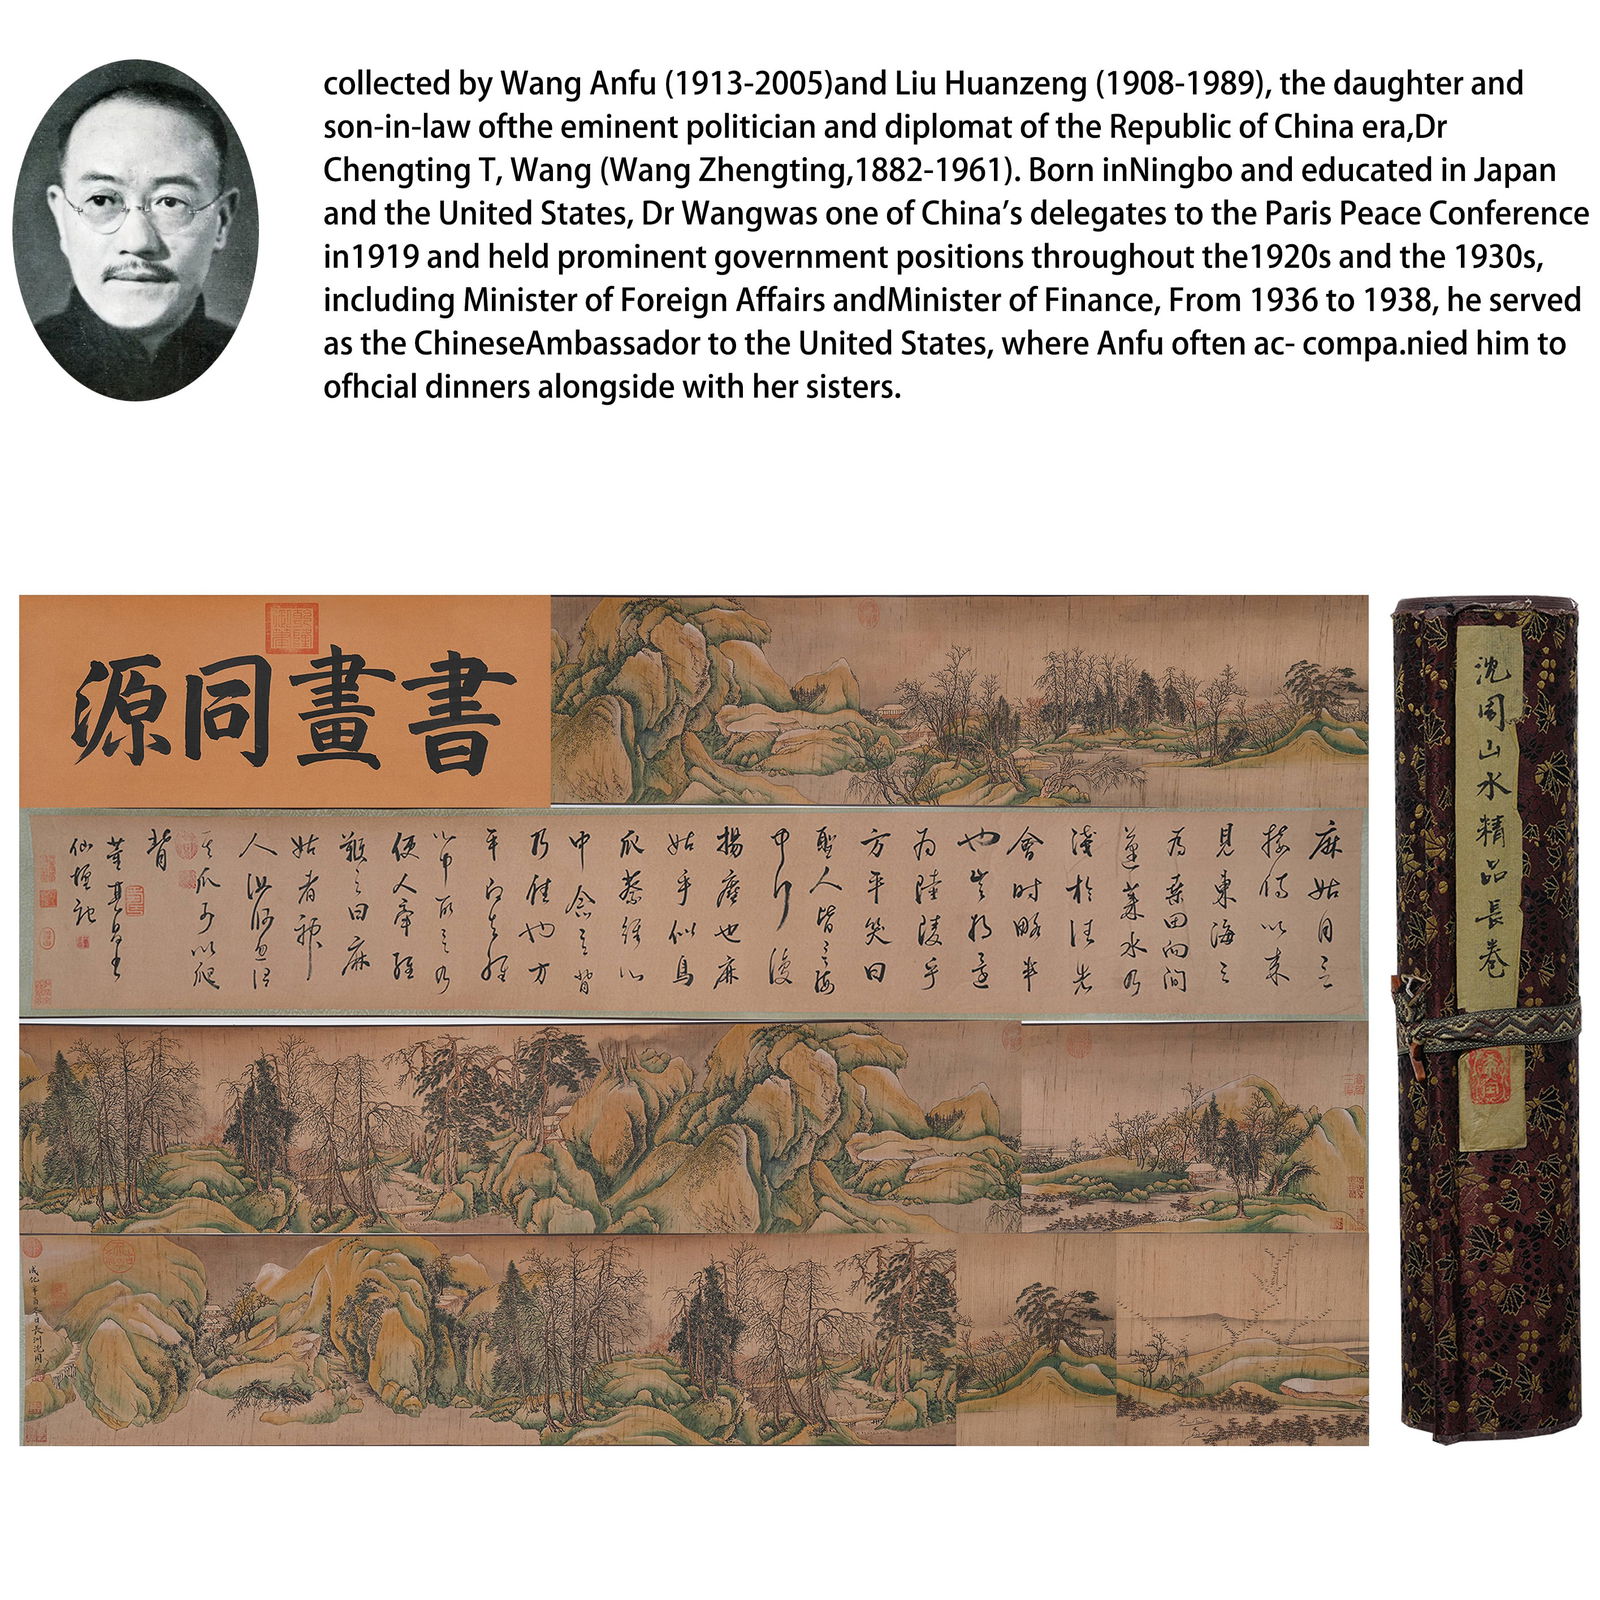 collected by Wang Anfu (1913-2005)and Liu Huanzeng (1908-1989), the daughter and
son-in-law ofthe eminent politician and diplomat of the Republic of China era,Dr
Chengting T, Wang (Wang Zhengting,1882-1961). Born inNingbo and educated in Japan
and the United States, Dr Wangwas one of China’s delegates to the Paris Peace Conference
in1919 and held prominent government positions throughout the1920s and the 1930s,
including Minister of Foreign Affairs andMinister of Finance, From 1936 to 1938, he served
as the ChineseAmbassador to the United States, where Anfu often ac- compa.nied him to
ofhcial dinners alongside with her sisters.
書畫同源
沈周山水精品長卷
麻姑自言
接侍以来
見東海三
為桑田向間
蓬萊水乃
淺於往者
會时略半
也豈將還
為陸陵乎
方平笑曰
聖人皆言海
中行復
揚塵也麻
姑手似鳥
爪蔡經心
中念言背
乃佳也方
平已知經
心中所言乃
使人牽經
鞭之曰麻
姑者神
人汝何忽谓
其爪可以爬
背
董其昌書
仙壇記
長洲沈周